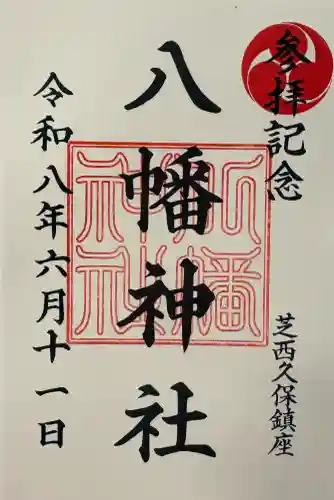 参拝記念
芝西久保鎮座
八幡神社
八幡神社
令和八年六月十一日